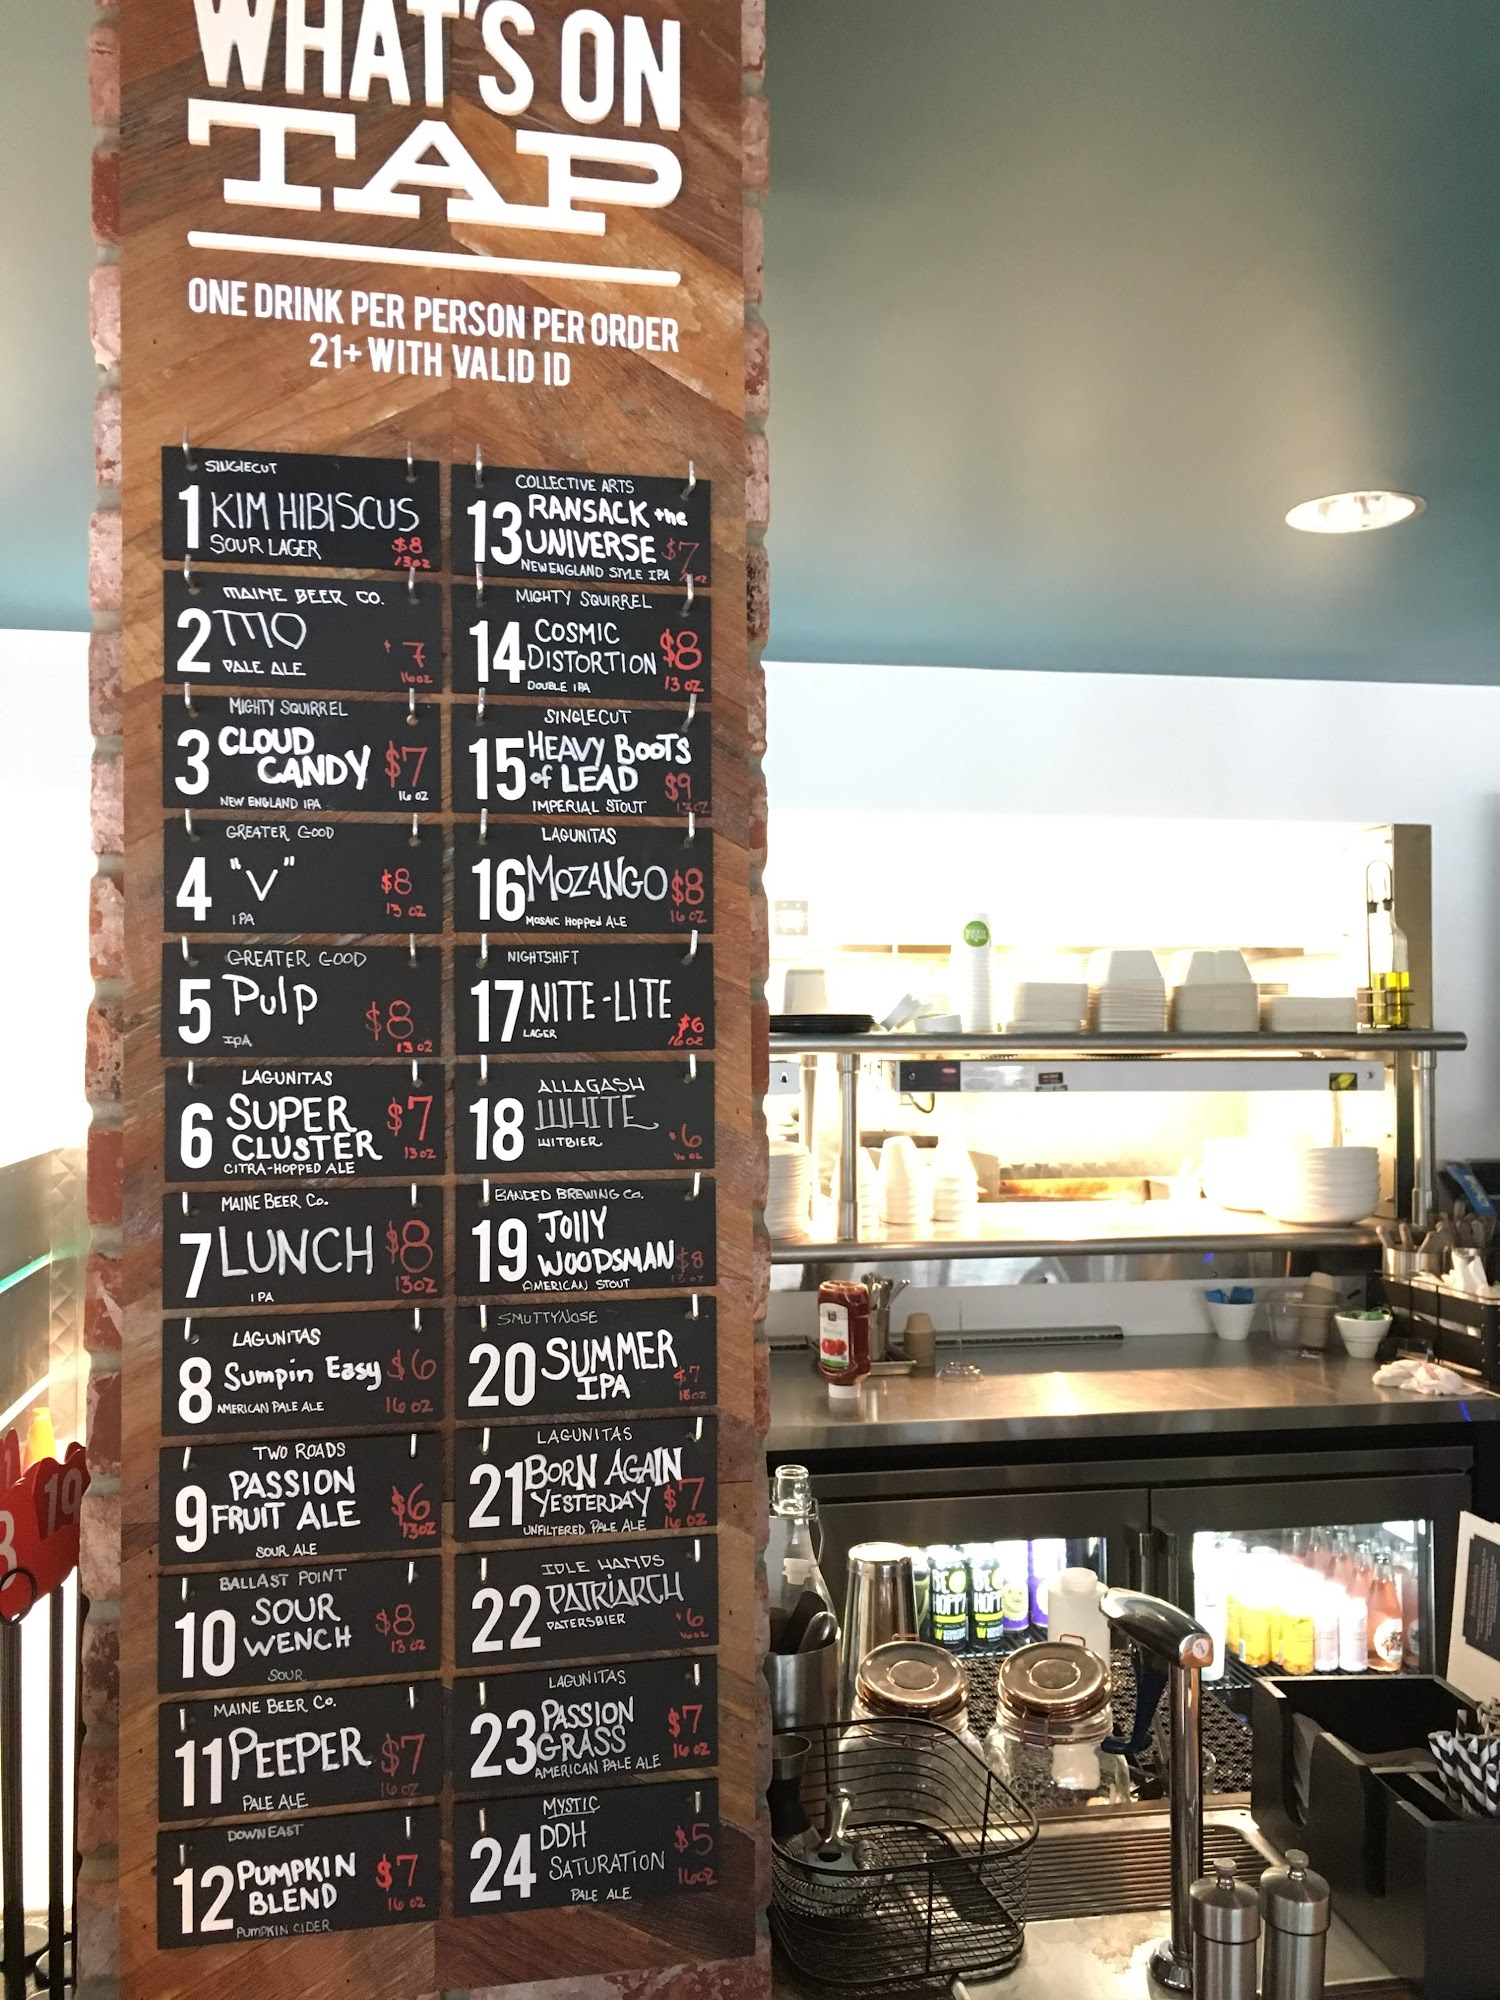 WHAT'S ON
TAP
ONE DRINK PER PERSON PER ORDER
21+ WITH VALID ID
SINGLECUT
1 KIM HIBISCUS
SOUR LAGER $8
13 OZ
MAINE BEER CO.
2 MO
PALE ALE 7
16 OZ
MIGHTY SQUIRREL
3 CLOUD
CANDY $7
NEW ENGLAND IPA 16 OZ
GREATER GOOD
4 "V" $8
IPA 13 OZ
GREATER GOOD
5 Pulp $8
IPA 13 OZ
LAGUNITAS
6 SUPER $7
CLUSTER 13 OZ
CITRA-HOPPED ALE
MAINE BEER Co.
7 LUNCH $8
IPA 13 OZ
LAGUNITAS
8 Sumpin Easy $6
AMERICAN PALE ALE 16 OZ
TWO ROADS
9 PASSION
FRUIT ALE $6
13 OZ
SOUR ALE
BALLAST POINT
10 SOUR
WENCH $8
13 OZ
SOUR
MAINE BEER Co.
11 PEEPER $7
PALE ALE 16 OZ
DOWNEAST
12 PUMPKIN
BLEND $7
16 OZ
PUMPKIN CIDER
COLLECTIVE ARTS
13 RANSACK the
UNIVERSE $7
NEW ENGLAND STYLE IPA OZ
MIGHTY SQUIRREL
14 COSMIC
DISTORTION $8
DOUBLE IPA 13 OZ
SINGLECUT
15 HEAVY BOOTS
of LEAD $9
IMPERIAL STOUT 13 OZ
LAGUNITAS
16 MOZANGO $8
MOSAIC HOPPED ALE 16 OZ
NIGHTSHIFT
17 NITE-LITE
LAGER $6
16 OZ
ALLAGASH
18 WHITE
WITBIER 6
16 OZ
BANDED BREWING Co.
19 JOLLY
WOODSMAN $8
AMERICAN STOUT 13 OZ
SMUTTYNOSE
20 SUMMER
IPA $7
16 OZ
LAGUNITAS
21 BORN AGAIN
YESTERDAY $7
UNFILTERED PALE ALE 16 OZ
IDLE HANDS
22 PATRIARCH
PATERSBIER 6
16 OZ
LAGUNITAS
23 PASSION
GRASS $7
16 OZ
AMERICAN PALE ALE
MYSTIC
24 DDH
SATURATION $5
PALE ALE 16 OZ
19
BE
HOPPY
BE
HOPPY